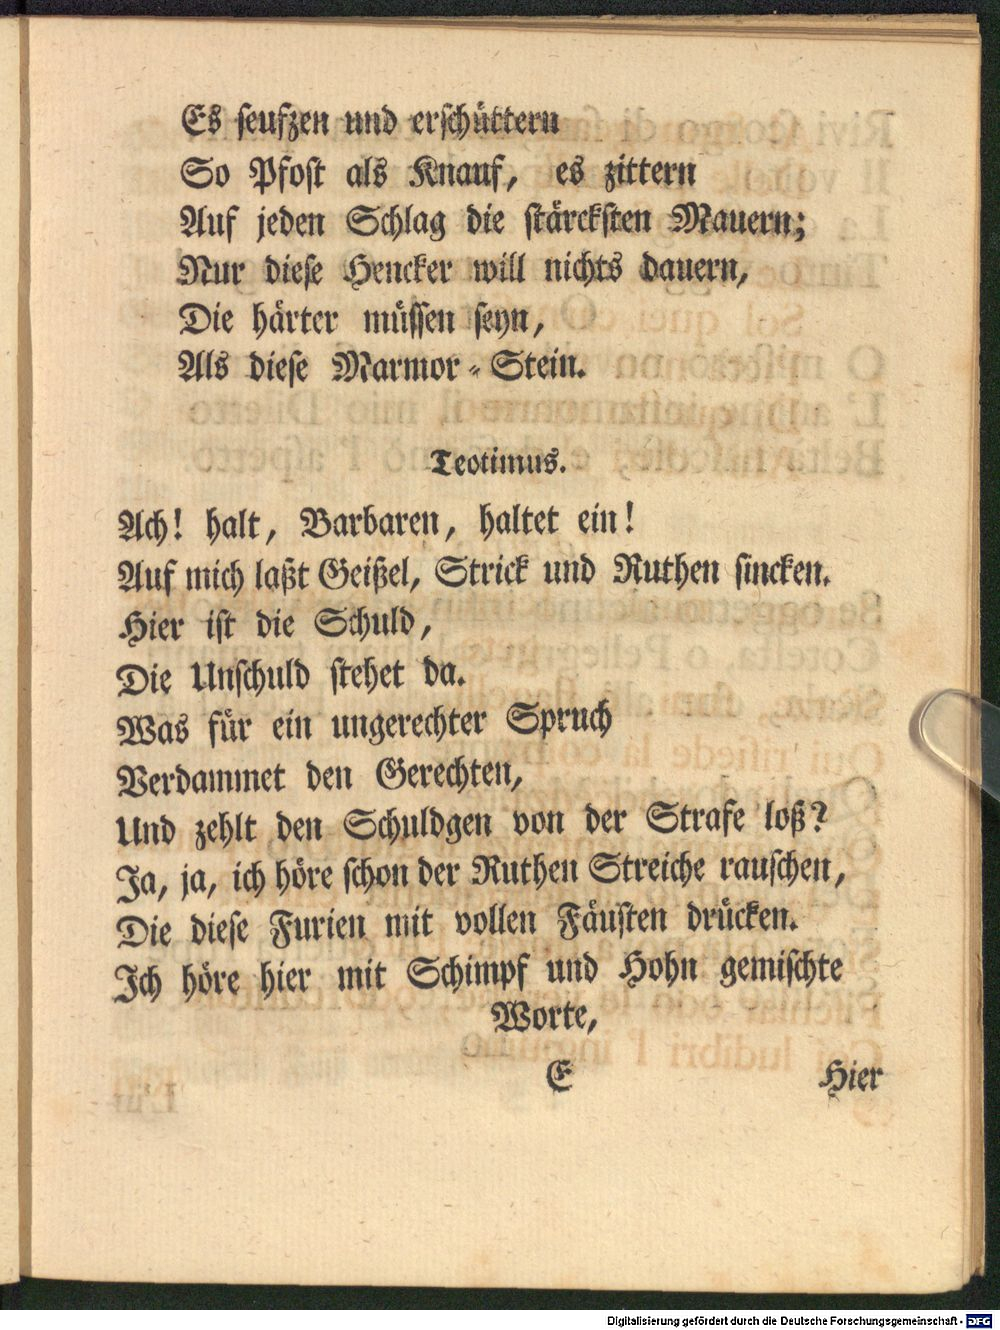 Es seufzen und erschüttern
So Pfost als Knauf, es zittern
Auf jeden Schlag die stärcksten Mauern;
Nur diese Hencker will nichts dauern,
Die härter müssen seyn,
Als diese Marmor-Stein.
Teotimus.
Ach! halt, Barbaren, haltet ein!
Auf mich laßt Geißel, Strick und Ruthen sincken.
Hier ist die Schuld,
Die Unschuld stehet da.
Was für ein ungerechter Spruch
Verdammet den Gerechten,
Und zehlt den Schuldgen von der Strafe loß?
Ja, ja, ich höre schon der Ruthen Streiche rauschen,
Die diese Furien mit vollen Fäusten drücken.
Ich höre hier mit Schimpf und Hohn gemischte
Worte,
E Hier
Digitalisierung gefördert durch die Deutsche Forschungsgemeinschaft - DFG